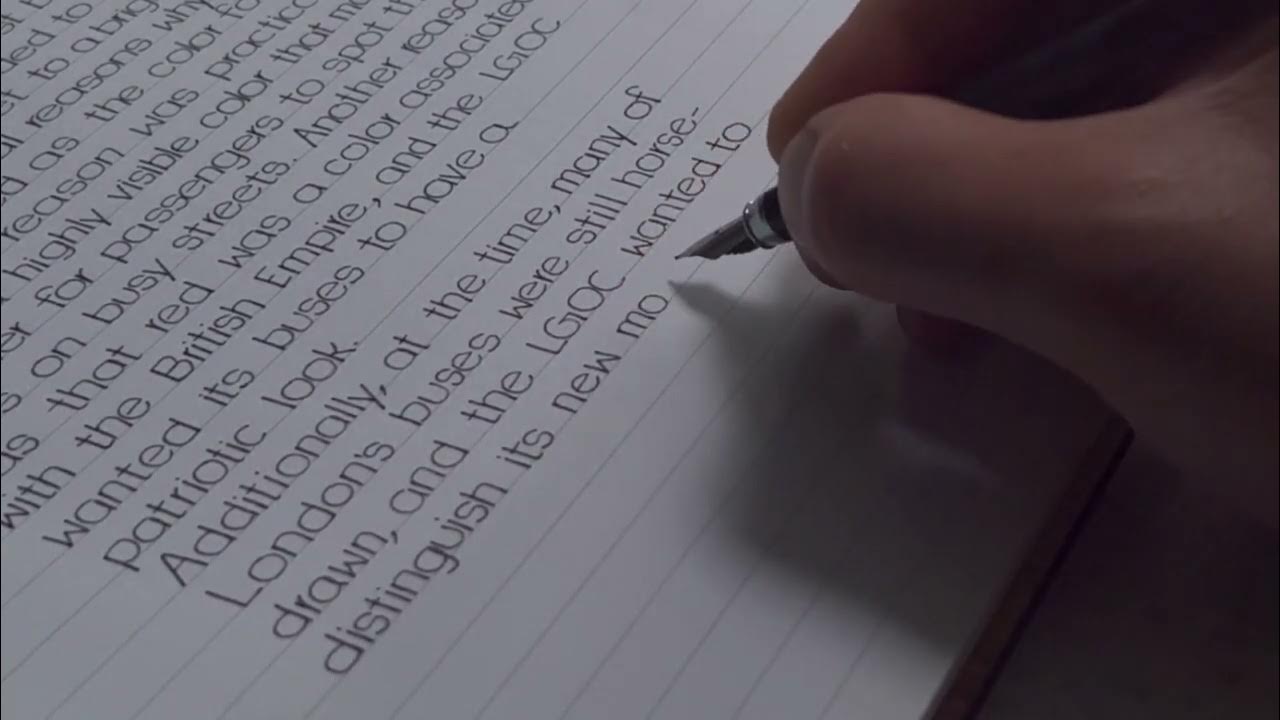 to
to a brig
reasons why
as the color fo
reason was practica
highly visible color that ma
for passengers to spot th
on busy streets. Another reaso
that red was a color associated
with the British Empire, and the LGOC
wanted its buses to have a
patriotic look.
Additionally, at the time, many of
London's buses were still horse-
drawn, and the LGOC wanted to
distinguish its new mo